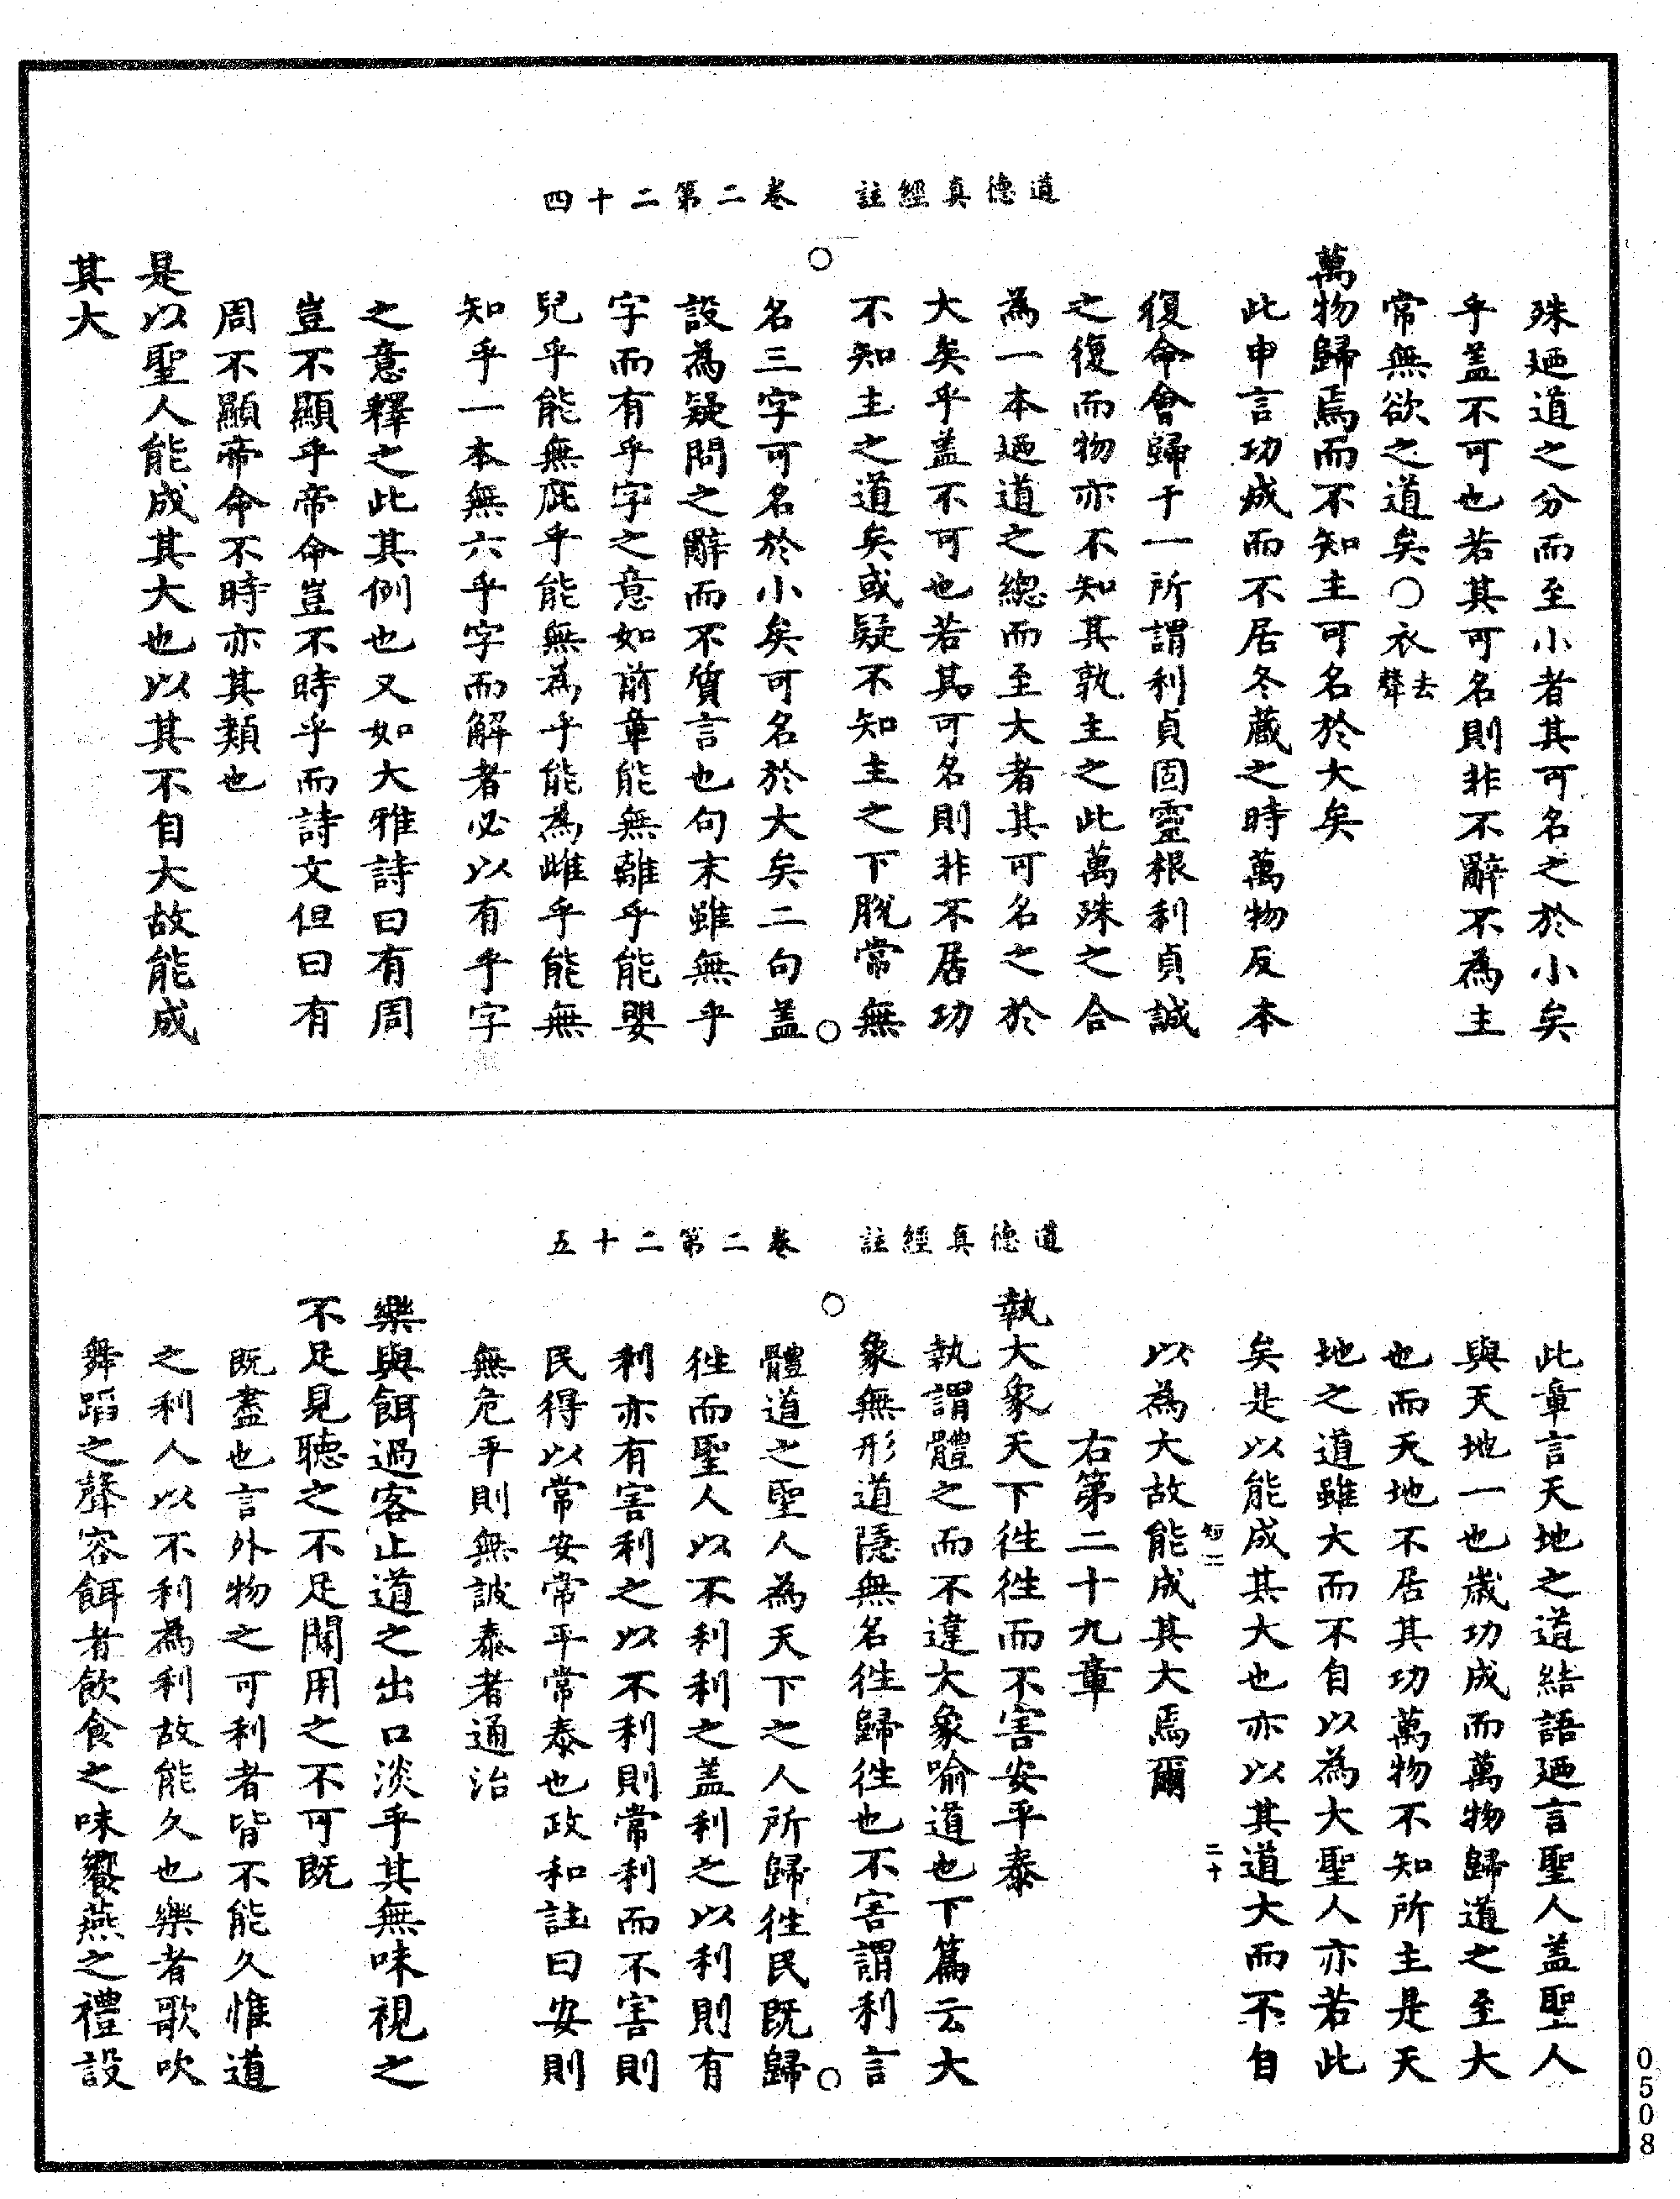 道德真經註　卷二第二十四
殊廼道之分而至小者其可名之於小矣
乎盖不可也若其可名則非不辭不為主
常無欲之道矣○衣去聲
萬物歸焉而不知主可名於大矣
此申言功成而不居冬藏之時萬物反本
復命會歸于一所謂利貞固靈根利貞誠
之復而物亦不知其孰主之此萬殊之合
為一本廼道之總而至大者其可名之於
大矣乎盖不可也若其可名則非不居功
不知主之道矣或疑不知主之下脫常無
名三字可名於小矣可名於大矣二句盖
設為疑問之辭而不質言也句末雖無乎
字而有乎字之意如前章能無離乎能嬰
兒乎能無疵乎能無為乎能為雌乎能無
知乎一本無六乎字而解者必以有乎字
之意釋之此其例也又如大雅詩曰有周
豈不顯乎帝命豈不時乎而詩文但曰有
周不顯帝命不時亦其類也
是以聖人能成其大也以其不自大故能成
其大
道德真經註　卷二第二十五
此章言天地之道結語廼言聖人盖聖人
與天地一也嵗功成而萬物歸道之至大
也而天地不居其功萬物不知所主是天
地之道雖大而不自以為大聖人亦若此
矣是以能成其大也亦以其道大而不自
短二　二十
以為大故能成其大焉爾
右第二十九章
執大象天下徃徃而不害安平泰
執謂體之而不違大象喻道也下篇云大
象無形道隱無名徃歸徃也不害謂利言
體道之聖人為天下之人所歸徃民既歸
徃而聖人以不利利之盖利之以利則有
利亦有害利之以不利則常利而不害則
民得以常安常平常泰也政和註曰安則
無危平則無詖泰者通治
樂與餌過客止道之出口淡乎其無味視之
不足見聽之不足聞用之不可既
既盡也言外物之可利者皆不能久惟道
之利人以不利為利故能久也樂者歌吹
舞蹈之聲容餌者飲食之味饗燕之禮設
0508